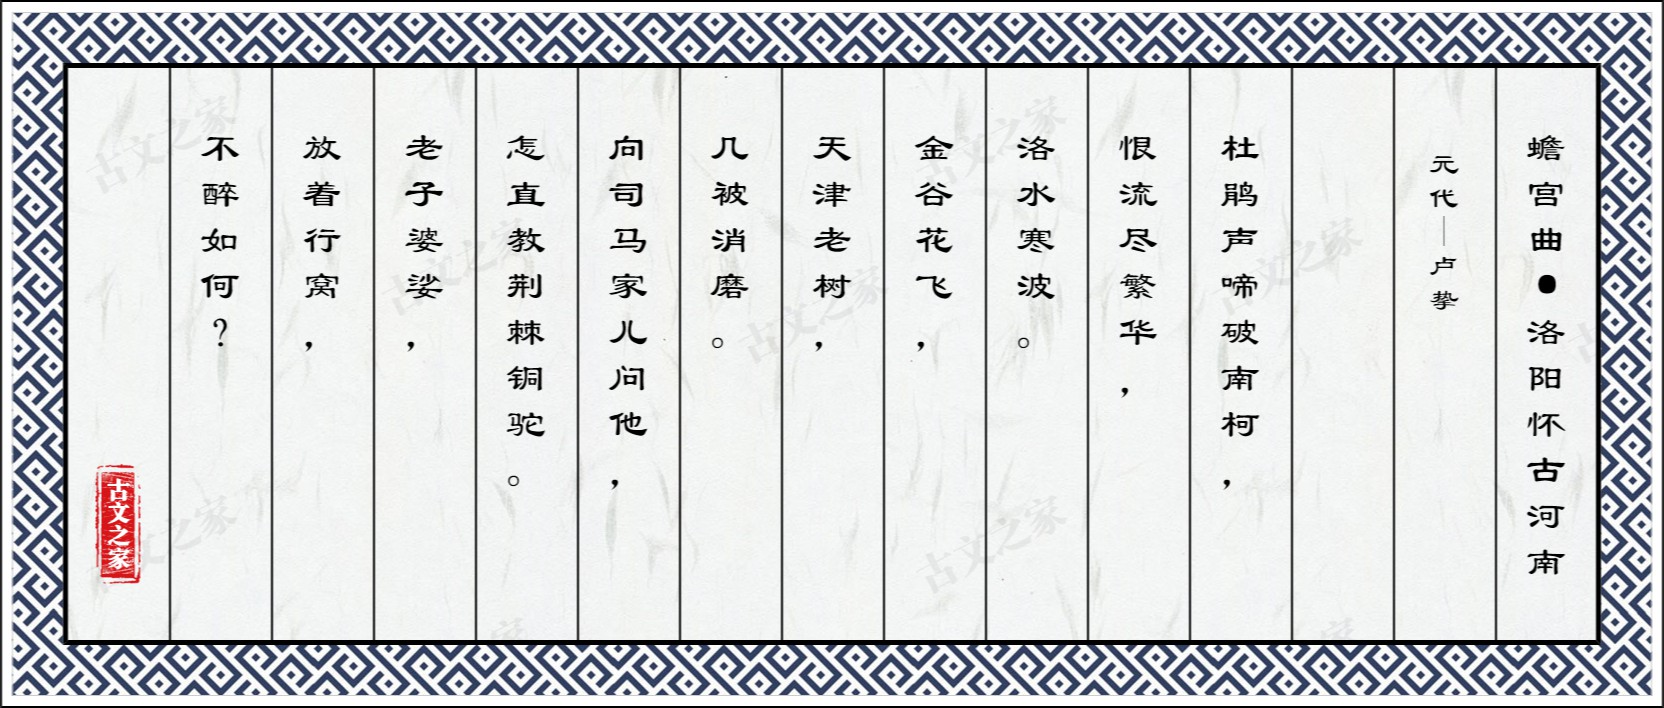 蟾宫曲●洛阳怀古河南
元代—卢挚
杜鹃声啼破南柯，
恨流尽繁华，
洛水寒波。
金谷花飞，
天津老树，
几被消磨。
向司马家儿问他，
怎直教荆棘铜驼。
老子婆娑，
放着行窝，
不醉如何？
古文之家